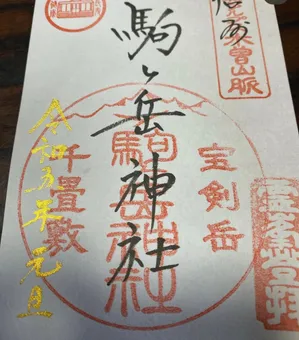 信州
木曽山脈
駒ヶ岳神社
宝剣岳
駒ヶ岳神社
千畳敷
令和五年 元旦